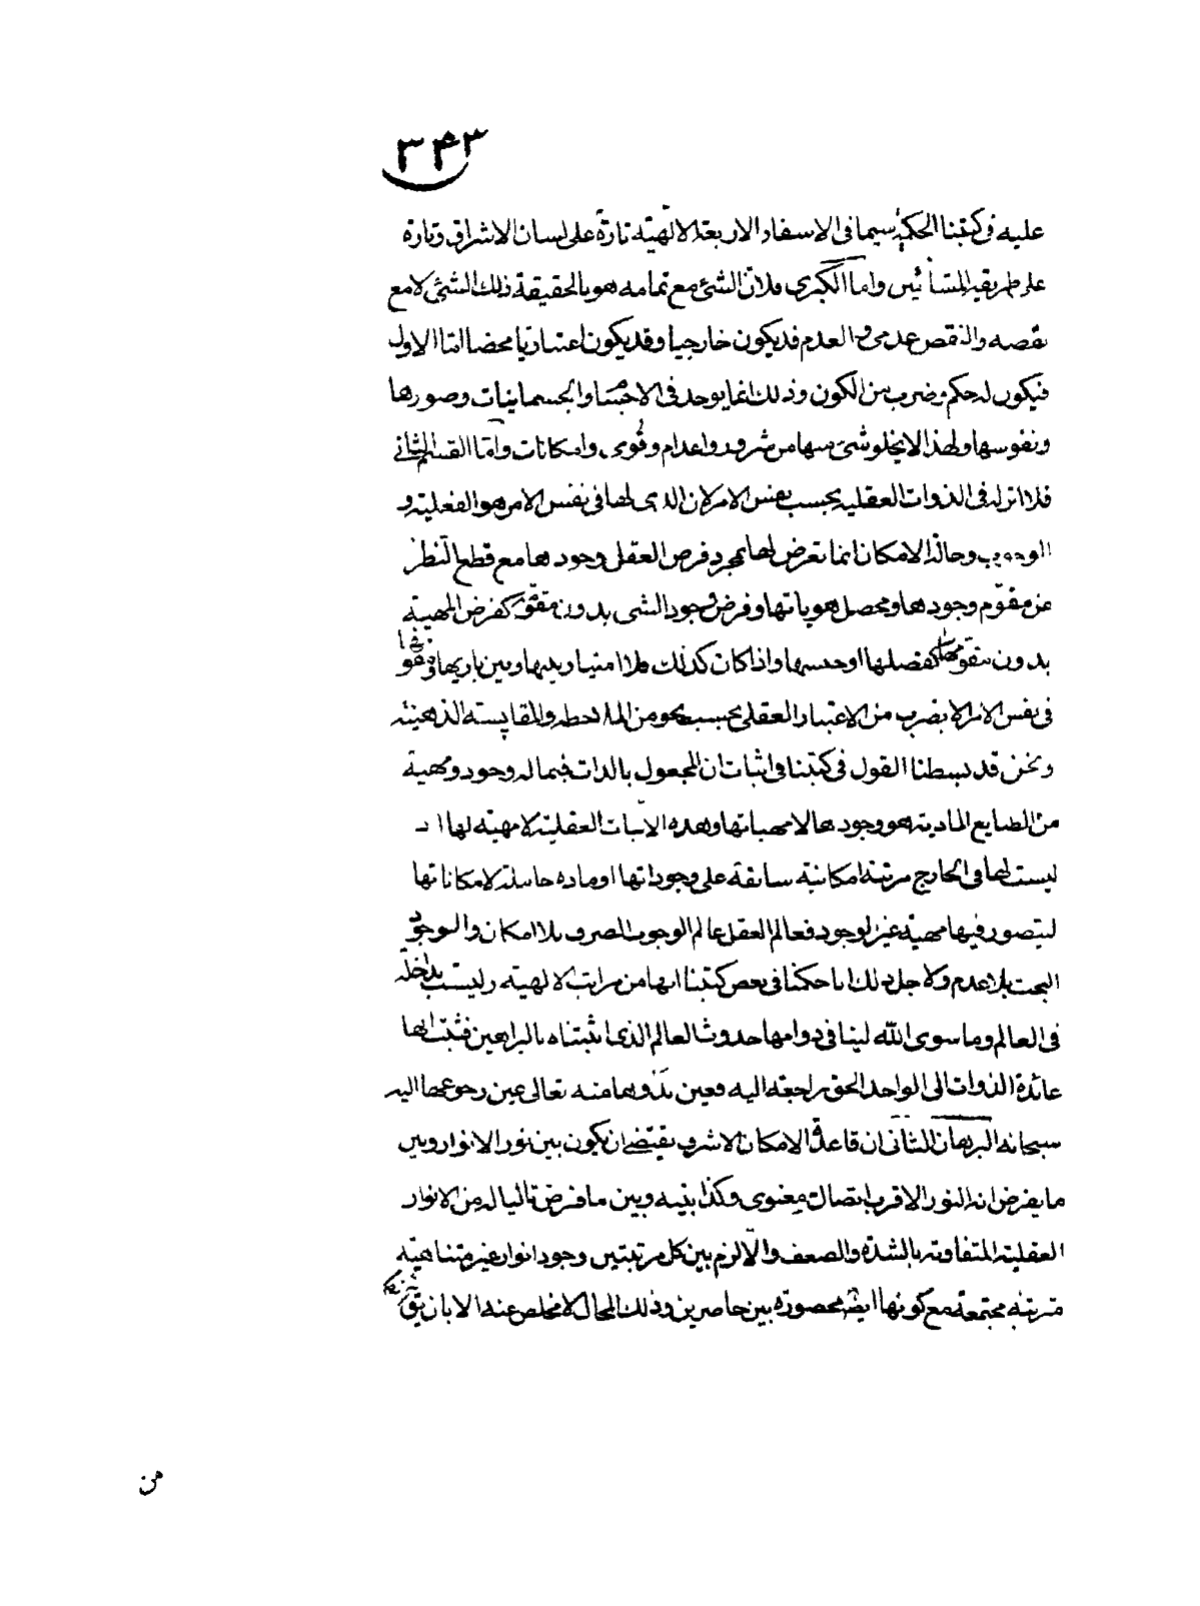 ٣٤٣
عليه فى كتبنا الحكمية سيما فى الاسفار الاربعة الالهية تارة على لسان الاشراق وتارة
على طريقة المشائين واما الكبرى فلان الشئ مع تمامه هو بالحقيقة ذلك الشئ لا مع
نقصه والنقص عدمى والعدم قد يكون خارجيا وقد يكون اعتباريا محضا اما الاول
فيكون له حكم وضرب من الكون وذلك انما يوجد فى الاجسام والجسمانيات وصورها
ونفوسها ولهذا لا يخلو شئ منها من شرور واعدام وقوى وامكانات واما القسم الثانى
فلا اثر له فى الذوات العقلية بحسب نفس الامر لان الذى لها فى نفس الامر هو الفعلية و
الوجوب وحالة الامكان انما تعرض لها بمجرد فرض العقل وجودها مع قطع النظر
عن مقوم وجودها ومحصل هوياتها وفرض وجود الشى بدون مقومه كفرض المهية
بدون مقوماتها كفصلها او جنسها واذا كان كذلك فلا امتياز بينها وبين باريها
فى نفس الامر الا بضرب من الاعتبار العقلى بحسب نحو من الملاحظة والمقايسة الذهنية
ونحن قد بسطنا القول فى كتبنا فى اثبات ان المجعول بالذات فيما له وجود ومهية
من الطبايع المادية هو وجودها لا مهياتها وهذه الانيات العقلية لا مهية لها اذ
ليست لها فى الخارج مرتبة امكانية سابقة على وجوداتها او مادة حاملة لامكاناتها
ليتصور فيها مهية غير الوجود فعالم العقل عالم الوجوب الصرف بلا امكان والوجود
البحت بلا عدم ولاجل ذلك انا حكمنا فى بعض كتبنا انها من مراتب الالهية وليست بداخلة
فى العالم وما سوى الله لينافى دوامها حدوث العالم الذى اثبتناه بالبراهين فثبت انها
عائدة الذوات الى الواحد الحق راجعة اليه فعين بدوها منه تعالى عين رجوعها اليه
سبحانه البرهان الثانى ان قاعدة الامكان الاشرف يقتضى ان يكون بين نور الانوار وبين
ما يفرض انه النور الاقرب اتصال معنوى وكذا بينه وبين ما فرض تاليا له من الانوار
العقلية المتفاوتة بالشدة والضعف والا لزم بين كل مرتبتين وجود انوار غير متناهية
مترتبة مجتمعة مع كونها ايضا محصورة بين حاصرين وذلك المحال لا مخلص عنه الا بان
من